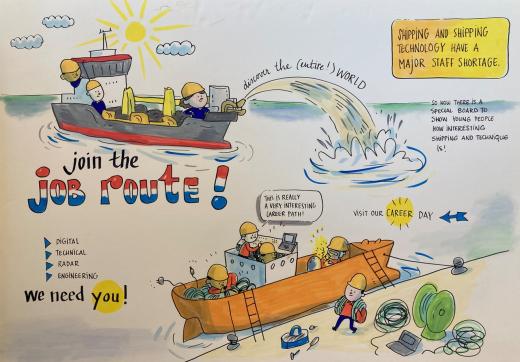 SHIPPING AND SHIPPING
TECHNOLOGY HAVE A
MAJOR STAFF SHORTAGE.
discover the (entire!) WORLD
SO NOW THERE IS A
SPECIAL BOARD TO
SHOW YOUNG PEOPLE
HOW INTERESTING
SHIPPING AND TECHNIQUE
IS!
join the
JOB ROUTE!
THIS IS REALLY
A VERY INTERESTING
CAREER PATH!
VISIT OUR CAREER DAY
DIGITAL
TECHNICAL
RADAR
ENGINEERING
We need you!